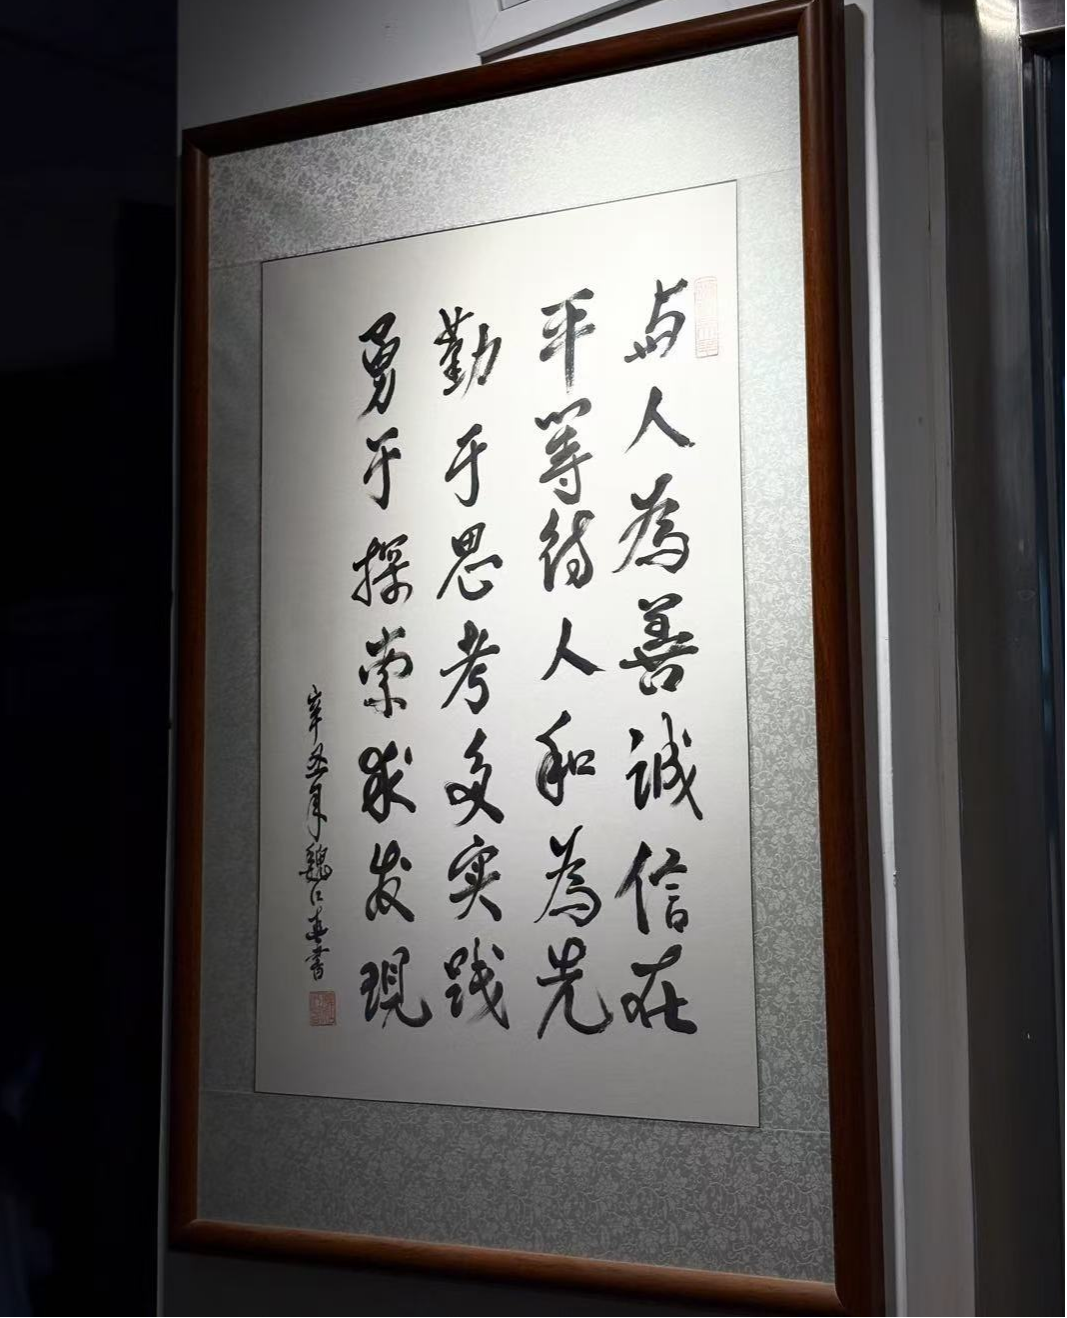 与人為善誠信在
平等待人和為先
勤于思考多实践
勇于探索求发现
辛丑年魏仁喜書